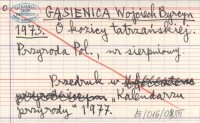 GĄSIENICA Wojciech Byrcyn
1973. O kozicy tatrzańskiej.
Przyroda Pol., nr sierpniowy.
Przedruk w
"Kalendarzu
przyrody" 1977.